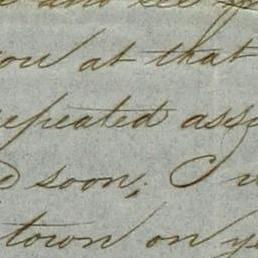 and see
at that
repeated
soon; I
town on